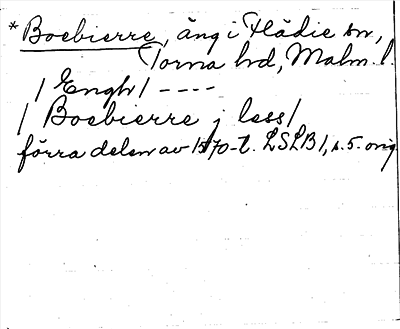 * Boebierre, äng i Flädie sn,
Torna hd, Malm. l.
/ Engh / ----
/ Boebierre j less /
förra delen av 1570-t. LSLB 1, s. 5. orig